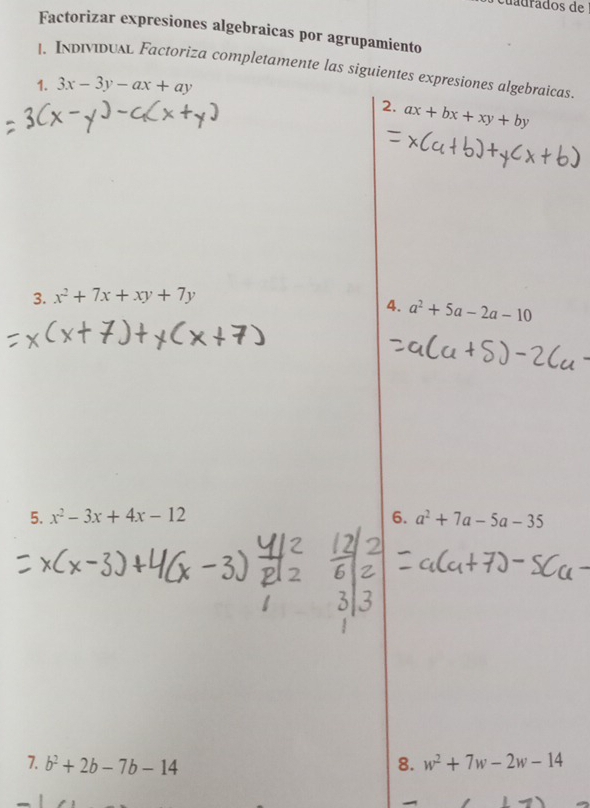 cuadrados de
Factorizar expresiones algebraicas por agrupamiento
I. INDIVIDUAL Factoriza completamente las siguientes expresiones algebraicas.
1. 3x − 3y − ax + ay
= 3(x-y)-a(x+y)
2. ax + bx + xy + by
= x(a+b)+y(x+b)
3. x² + 7x + xy + 7y
= x(x+7)+y(x+7)
4. a² + 5a − 2a − 10
= a(a+5)-2(a-
5. x² − 3x + 4x − 12
= x(x-3)+4(x-3)
4|2
2|2
1
12|2
6|2
3|3
1
6. a² + 7a − 5a − 35
= a(a+7)-5(a-
7. b² + 2b − 7b − 14
8. w² + 7w − 2w − 14